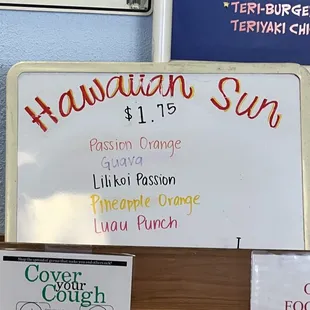 *TERI-BURGE
TERIYAKI CHI
Hawaiian Sun
$1.75
Passion Orange
Guava
Lilikoi Passion
Pineapple Orange
Luau Punch
Cover
your
Cough
FOO